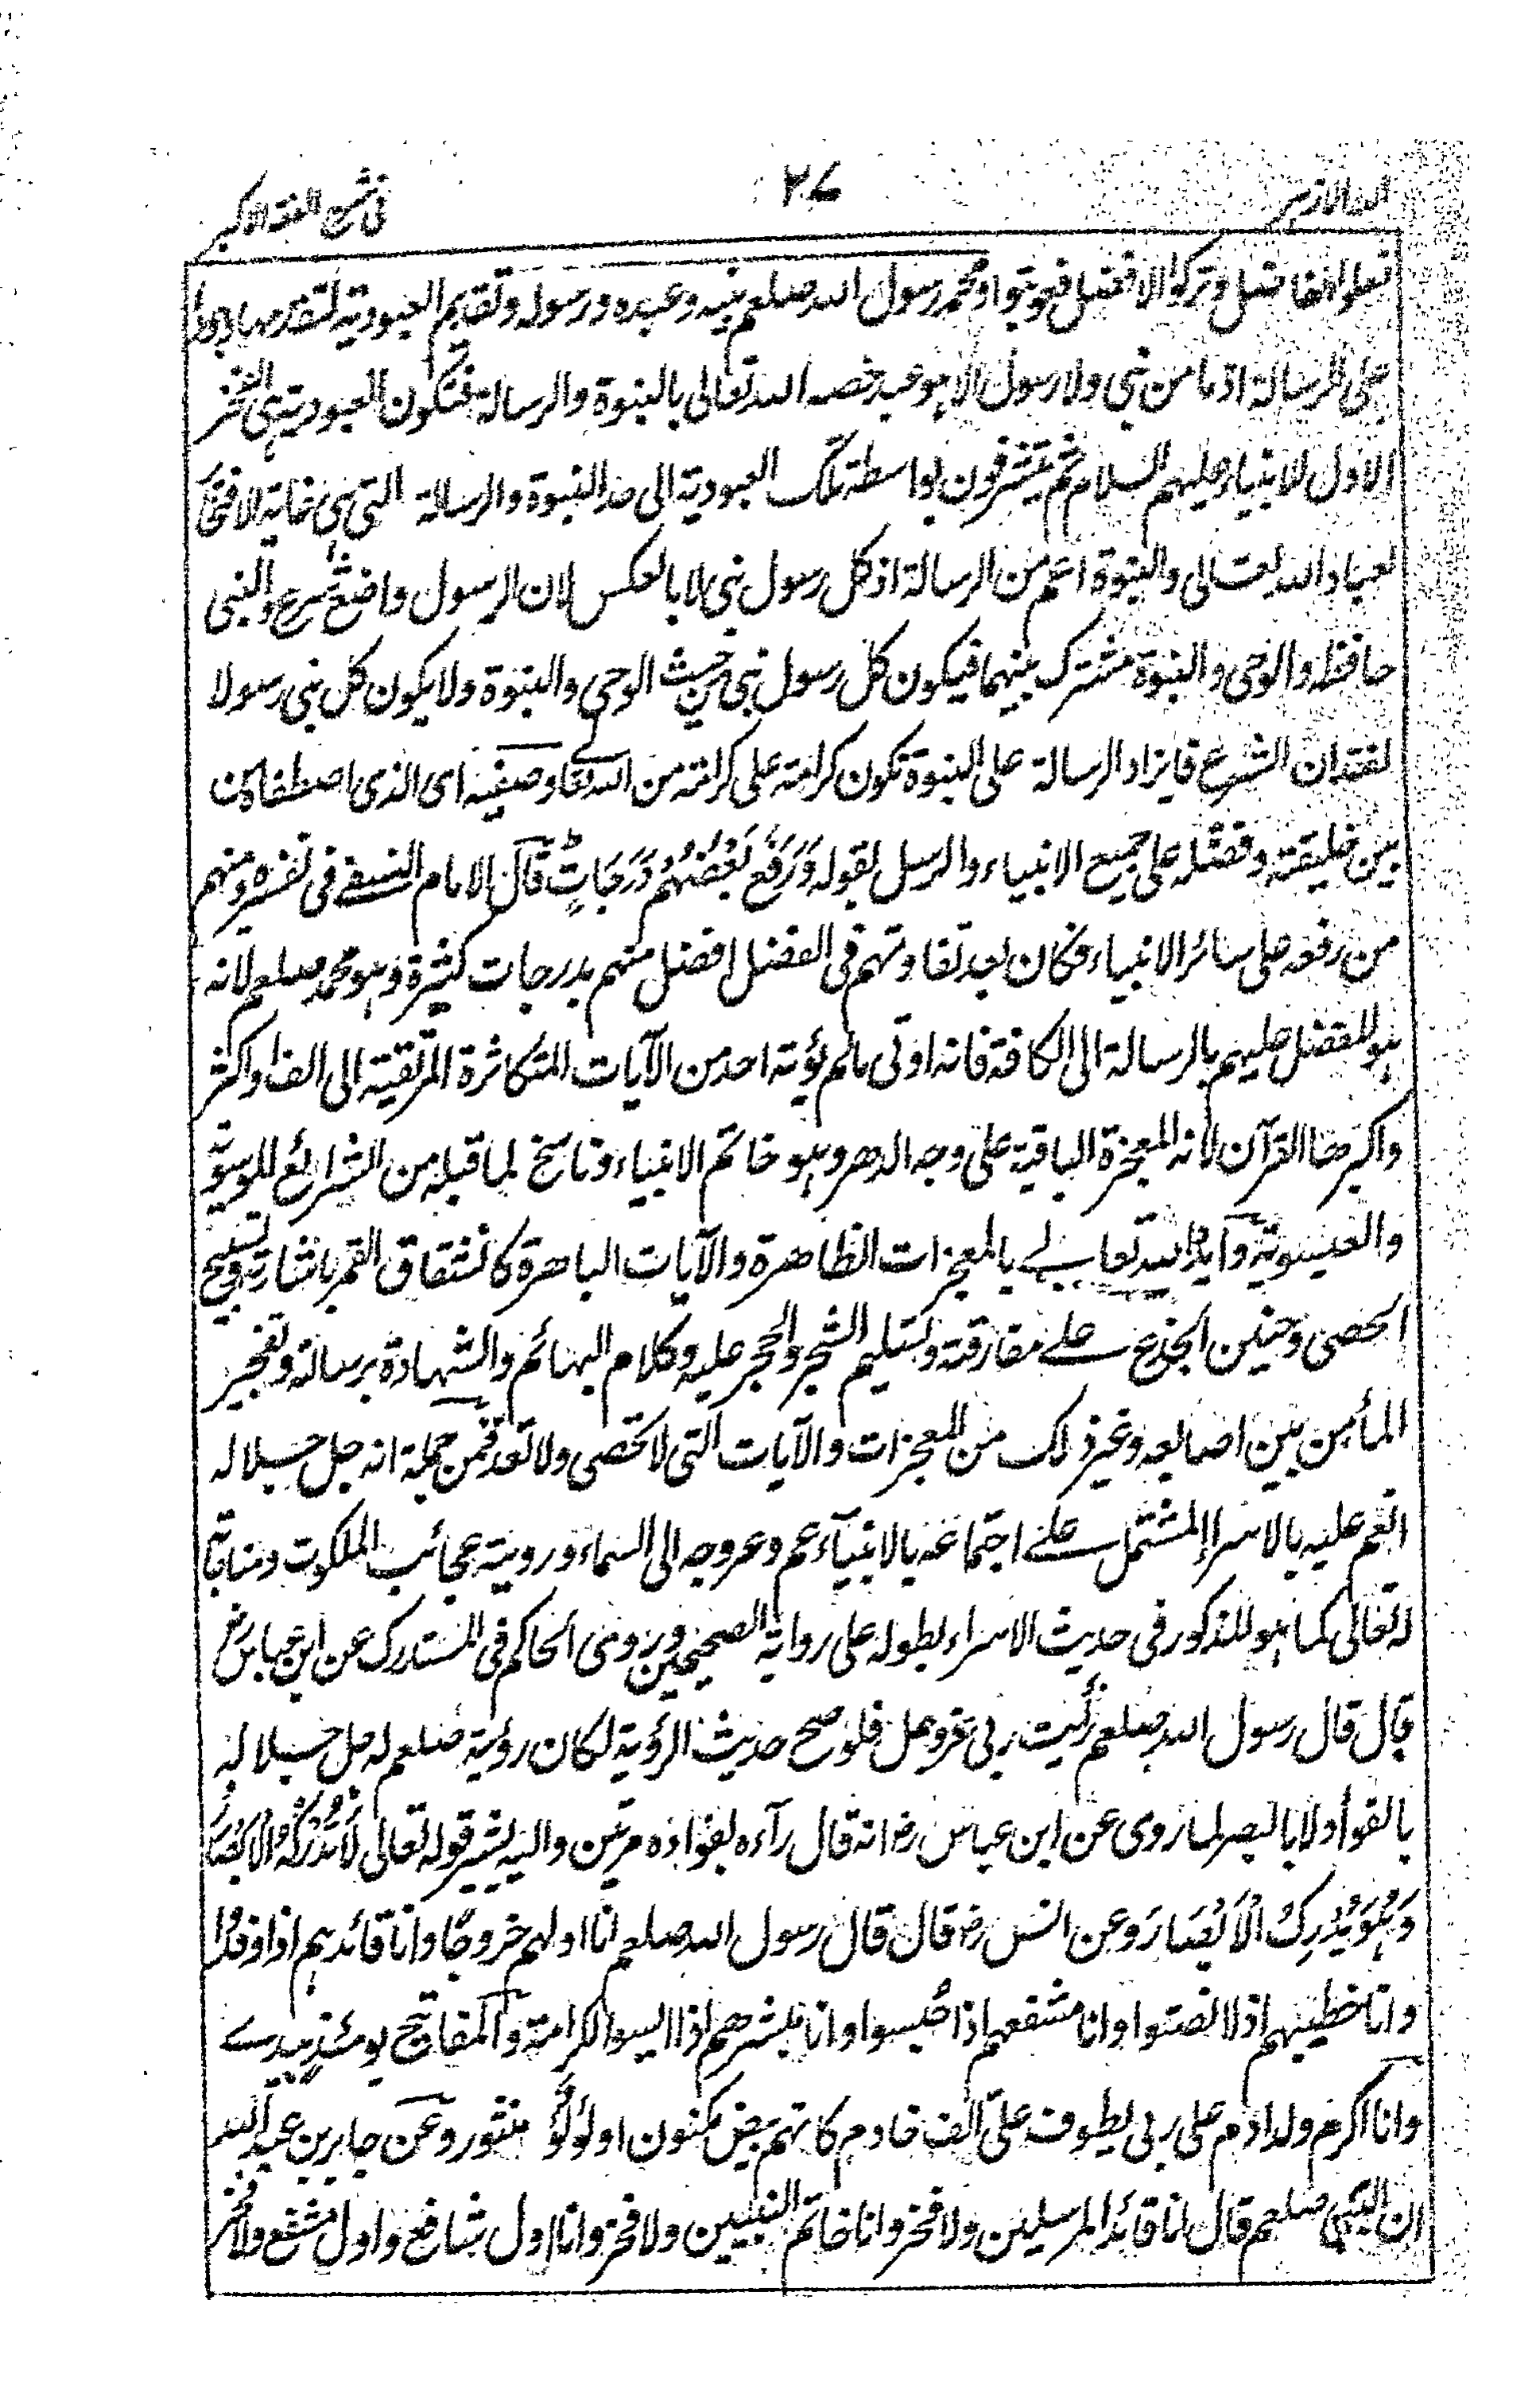 ۲۷
فی شرح الفقه الاکبر
فعلوا الفاضل وترکوا الافضل فعوتبوا ومحمد رسول الله صلعم نبیه وعبده ورسوله وتقدیم العبودیة لتقدمها
علی الرسالة اذ ما من نبی ولا رسول الا هو عبد خصه الله تعالی بالنبوة والرسالة فتکون العبودیة هی الفخر
الاول للانبیاء علیهم السلام ثم یتشرفون بواسطة تلک العبودیة الی حد النبوة والرسالة التی هی غایة الافتخار
لعباد الله تعالی والنبوة اعم من الرسالة اذ کل رسول نبی لا بالعکس لان الرسول واضع شرع والنبی
حافظه والوحی والنبوة مشترک بینهما فیکون کل رسول نبی من حیث الوحی والنبوة ولا یکون کل نبی رسولا
لفقدان الشرع فایراد الرسالة علی النبوة تکون کرامة علی کرامة من الله تعا وصفیه ای الذی اصطفاه من
بین خلیقته وفضّله علی جمیع الانبیاء والرسل لقوله وَرَفَعَ بَعْضَهُمْ دَرَجَاتٍ قال الامام النسفے فی تفسیره ومنهم
من رفعه علی سائر الانبیاء فکان بعد تفاوتهم فی الفضل افضل منهم بدرجات کثیرة وهو محمد صلعم لانه
هو المفضل علیهم بالرسالة الی الکافة فانه اوتی ما لم یؤته احد من الآیات المتکاثرة المرتقیة الی الف او اکثر
واکبرها القرآن لانه المعجزة الباقیة علی وجه الدهر وهو خاتم الانبیاء وناسخ لما قبله من الشرایع الموسویة
والعیسویة وایده الله تعالے بالمعجزات الظاهرة والآیات الباهرة کانشقاق القمر باشارته وتسبیح
الحصی وحنین الجذع علے مفارقته وتسلیم الشجر والحجر علیه وکلام البهائم والشهادة برسالته وتفجیر
المأمن بین اصابعه وغیر ذلک من المعجزات والآیات التی لا تحصی ولا تعد فمن جملة انه جل جلاله
انعم علیه بالاسراء المشتمل علے اجتماعه بالانبیآء عم وعروجه الی السماء ورویته عجائب الملکوت ومناجاة
له تعالی کما هو المذکور فی حدیث الاسراء بطوله علی روایة الصحیحین وروی الحاکم فی المستدرک عن ابن عباس رض
قال قال رسول الله صلعم رئیت ربی عز وجل فلو صح حدیث الرؤیة لکان رؤیة صلعم له جل جلاله
بالفوأد لا بالبصر لما روی عن ابن عباس رض انه قال رآءه بفواده مرتین والیه یشیر قوله تعالی لَا تُدْرِکُهُ الْاَبْصَارُ
وَهُوَ یُدْرِکُ الْاَبْصَارَ وعن انس رض قال قال رسول الله صلعم انا اولهم خروجًا وانا قائدهم اذا وفدوا
وانا خطیبهم اذا انصتوا وانا مشفعهم اذا حُبسوا وانا مبشرهم اذا ایسوا الکرامة والمفاتیح یومئذٍ بیدے
وانا اکرم ولد ادم علی ربی یطوف علیّ الف خادم کانهم بیض مکنون او لؤلؤ منثور وعن جابر بن عبد الله
ان النبی صلعم قال انا قائد المرسلین ولا فخر وانا خاتم النبیین ولا فخر وانا اول شافع واول مشفع ولا فخر